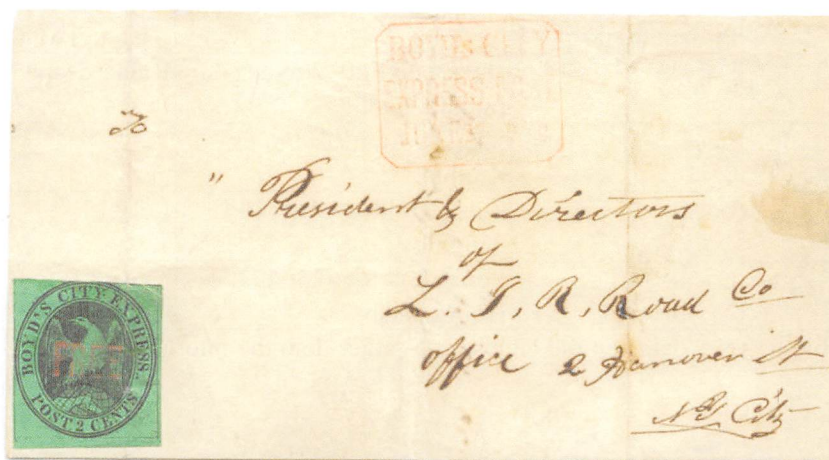 BOYD'S CITY
EXPRESS POST
To
" President & Directors
of
L. I, R, Road Co
office 2 Hanover St
NY City
BOYD'S CITY EXPRESS
POST 2 CENTS